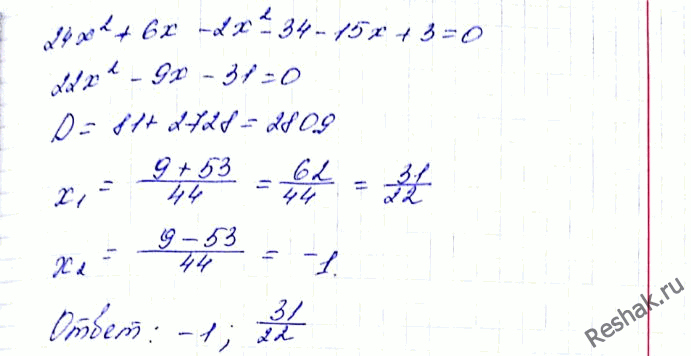 24x² + 6x - 2x² - 34 - 15x + 3 = 0
22x² - 9x - 31 = 0
D = 81 + 2728 = 2809
x₁ = (9 + 53)/44 = 62/44 = 31/22
x₂ = (9 - 53)/44 = -1.
Ответ: -1; 31/22
Reshak.ru